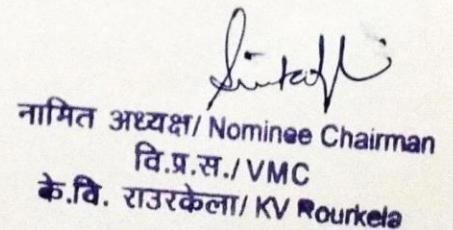 नामित अध्यक्ष/ Nominee Chairman
वि.प्र.स./ VMC
के.वि. राउरकेला/ KV Rourkela